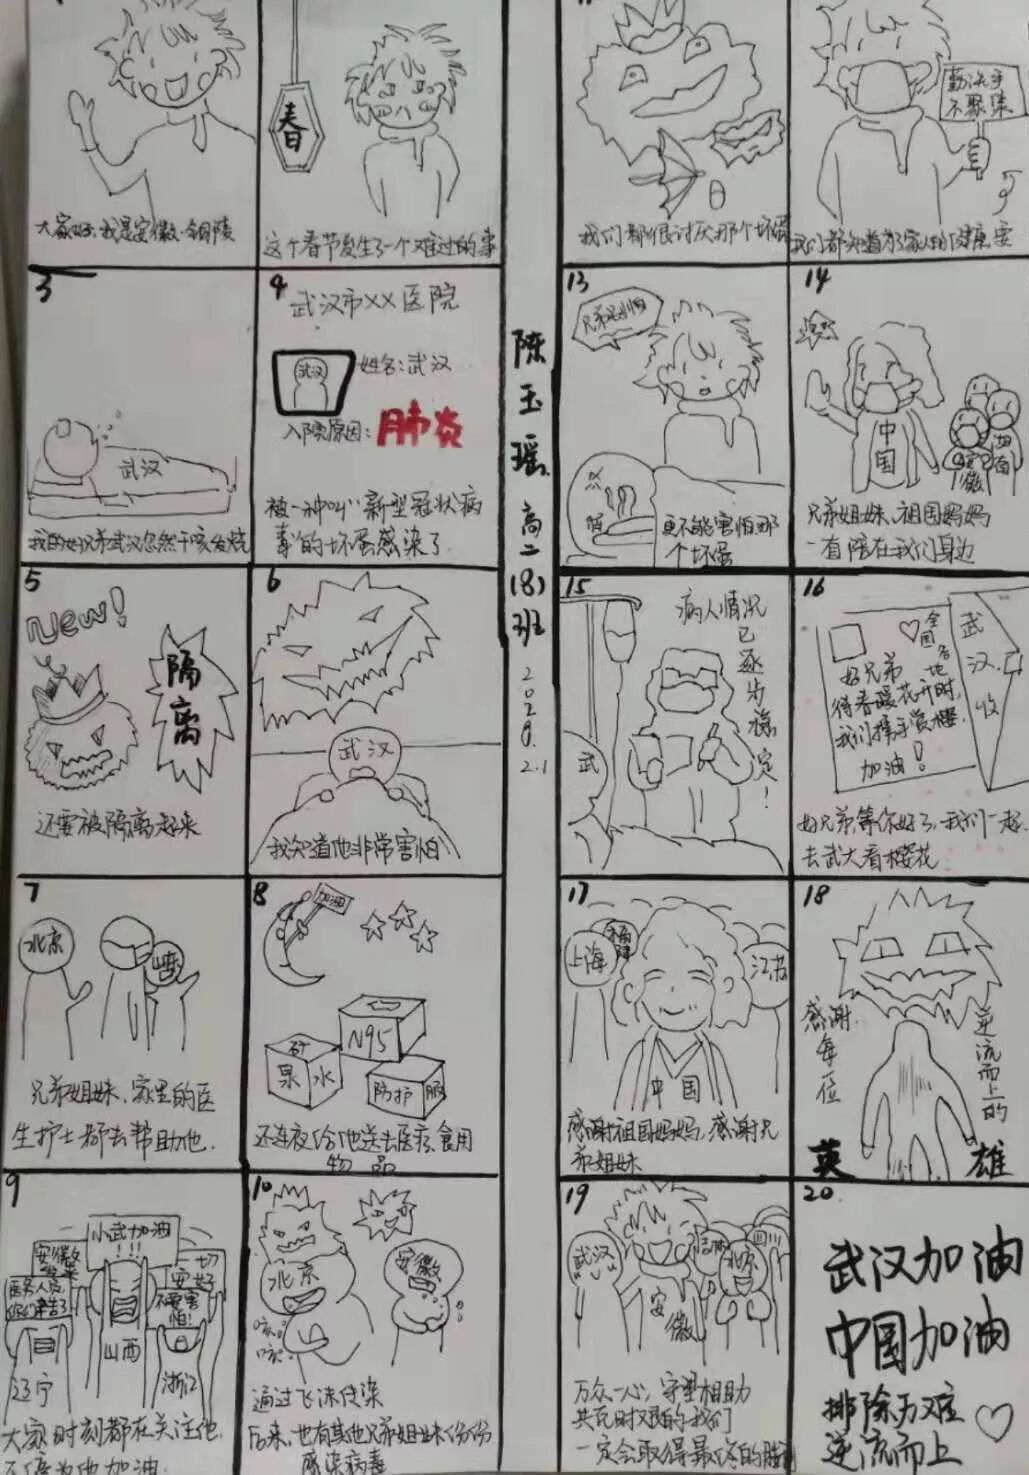 大家好,我是安徽·铜陵
春
这个春节发生了一个难过的事
3
武汉
我的好兄弟武汉忽然干咳发烧
4
武汉市XX医院
武汉
姓名:武汉
入院原因:肺炎
被一种叫"新型冠状病
毒"的坏蛋感染了
5
New!
隔离
还要被隔离起来
6
武汉
我知道他非常害怕
7
北京
兄弟姐妹,家里的医
生护士都去帮助他.
8
加油
N95
矿泉水
防护服
还连夜给他送去医疗,食用
物品
9
小武加油
!!!
一切
安好
不要害
怕!
辽宁
山西
浙江
大家时刻都在关注他
不停为他加油
10
北京
安徽
通过飞沫传染
后来,也有其他兄弟姐妹们纷纷
感染病毒
陈玉瑶
高二(8)班
2020.2.1
我们都很讨厌那个坏蛋
勤洗手
不聚集
我们都知道为了家人的健康要
13
更不能害怕那
个坏蛋
14
中国
安徽
兄弟姐妹,祖国妈妈
一直陪在我们身边
15
病人情况
已逐步稳定!
武
16
武汉收
全国各地
好兄弟
待春暖花开时,
我们携手赏樱.
加油!
好兄弟,等你好了,我们一起
去武大看樱花
17
上海
江苏
中国
感谢祖国妈妈,感谢兄
弟姐妹
18
感谢每一位
逆流而上的
英雄
19
武汉
安徽
北京
四川
万众一心,守望相助
共克时艰的我们
一定会取得最终的胜利
20
武汉加油
中国加油
排除万难
逆流而上